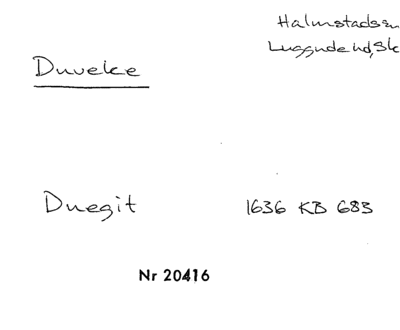 Halmstads sn
Luggude hd, Sk
Duveke
Duegit 1636 KB 683
Nr 20416